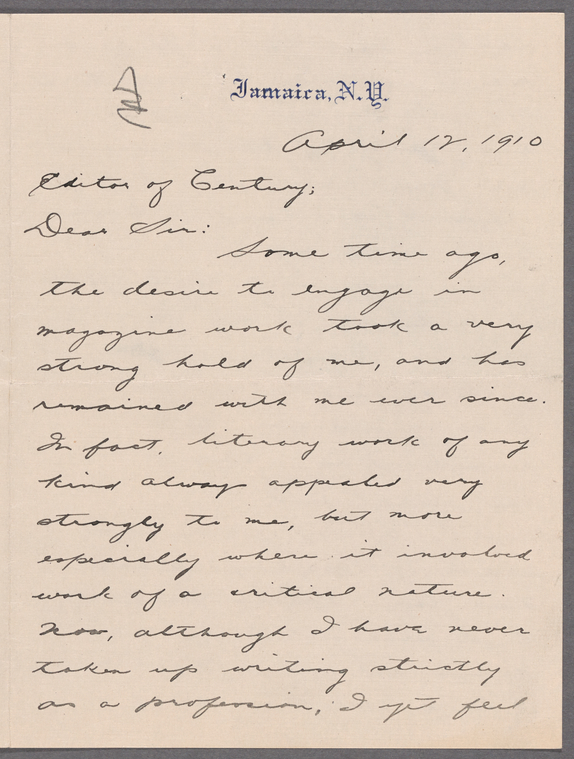 Jamaica, N.Y.
April 12, 1910
Editor of Century;
Dear Sir:
Some time ago,
the desire to engage in
magazine work took a very
strong hold of me, and has
remained with me ever since.
In fact, literary work of any
kind always appealed very
strongly to me, but more
especially where it involved
work of a critical nature.
Now, although I have never
taken up writing strictly
as a profession, I yet feel